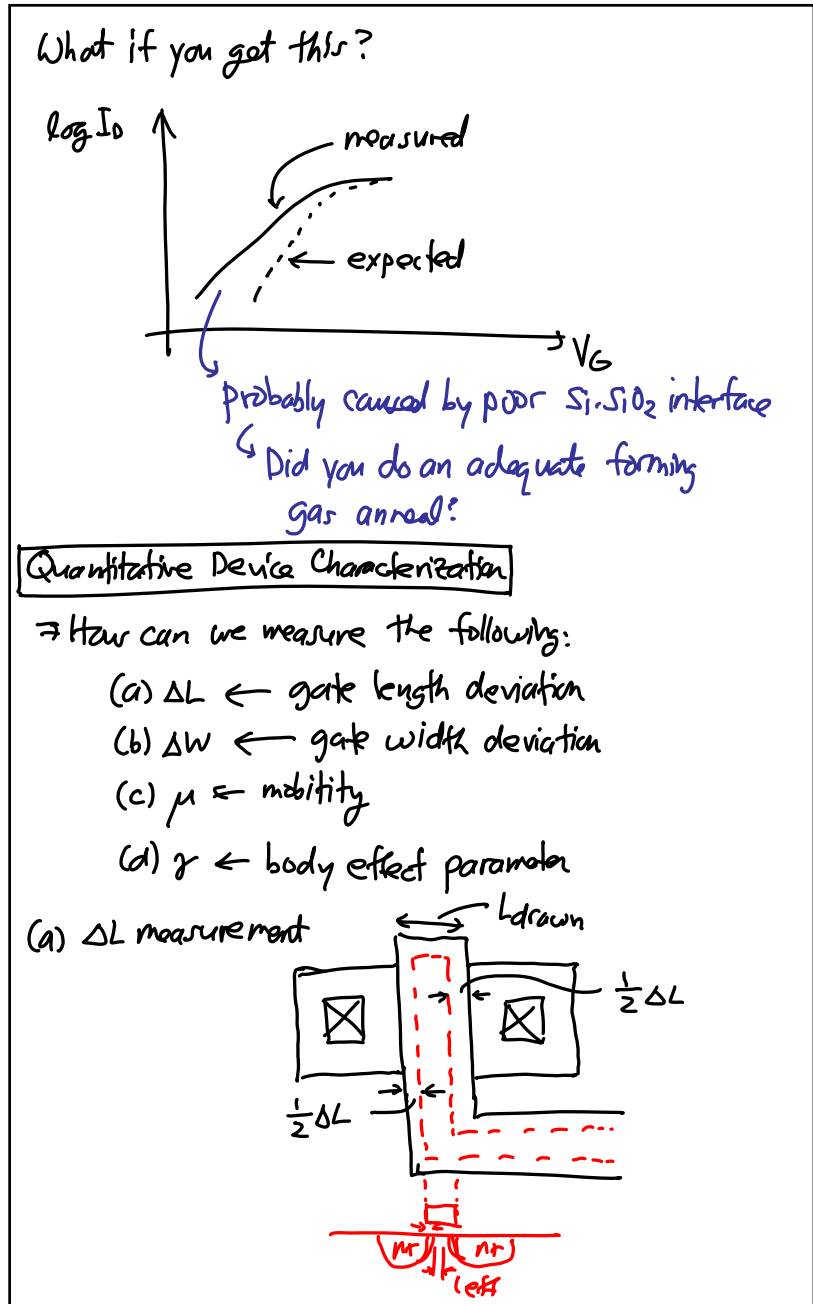 What if you get this?
log ID
measured
expected
VG
Probably caused by poor Si-SiO2 interface
Did you do an adequate forming
gas anneal?
Quantitative Device Characterization
⇒ How can we measure the following:
(a) ΔL ← gate length deviation
(b) ΔW ← gate width deviation
(c) μ ← mobility
(d) γ ← body effect parameter
(a) ΔL measurement
Ldrawn
1/2 ΔL
1/2 ΔL
n+ n+
Leff